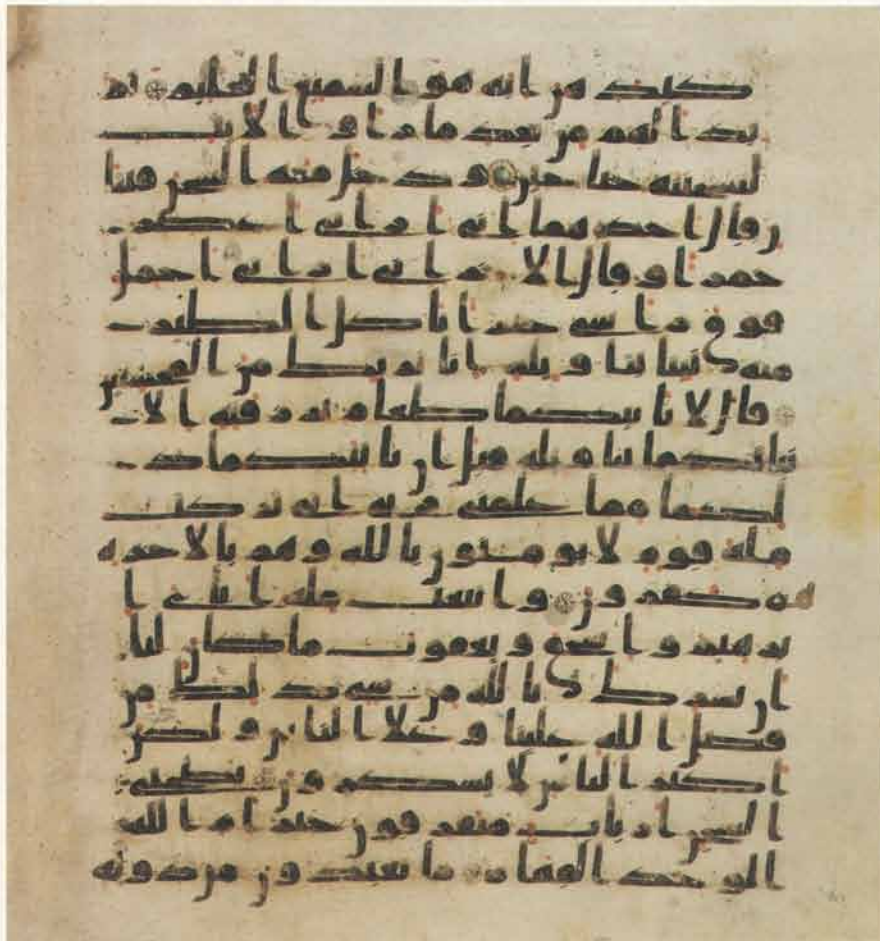 كيدهن انه هو السميع العليم ثم
بدا لهم من بعد ما راوا الايت
ليسجننه حتى حين ودخل معه السجن فتيا
ن قال احدهما اني اريني اعصر
خمرا وقال الاخر اني اريني احمل
فوق راسي خبزا تاكل الطير
منه نبينا بتاويله انا نريك من المحسنين
قال لا ياتيكما طعام ترزقنه الا
نباتكما بتاويله قبل ان ياتيكما ذ
لكما مما علمني ربي اني تركت
ملة قوم لا يومنون بالله وهم بالاخرة
هم كفرون واتبعت ملة اباي ا
برهيم واسحق ويعقوب ما كان لنا
ان نشرك بالله من شي ذلك من
فضل الله علينا وعلى الناس ولكن
اكثر الناس لا يشكرون يصحبي
السجن ارباب متفرقون خير ام الله
الوحد القهار ما تعبدون من دونه